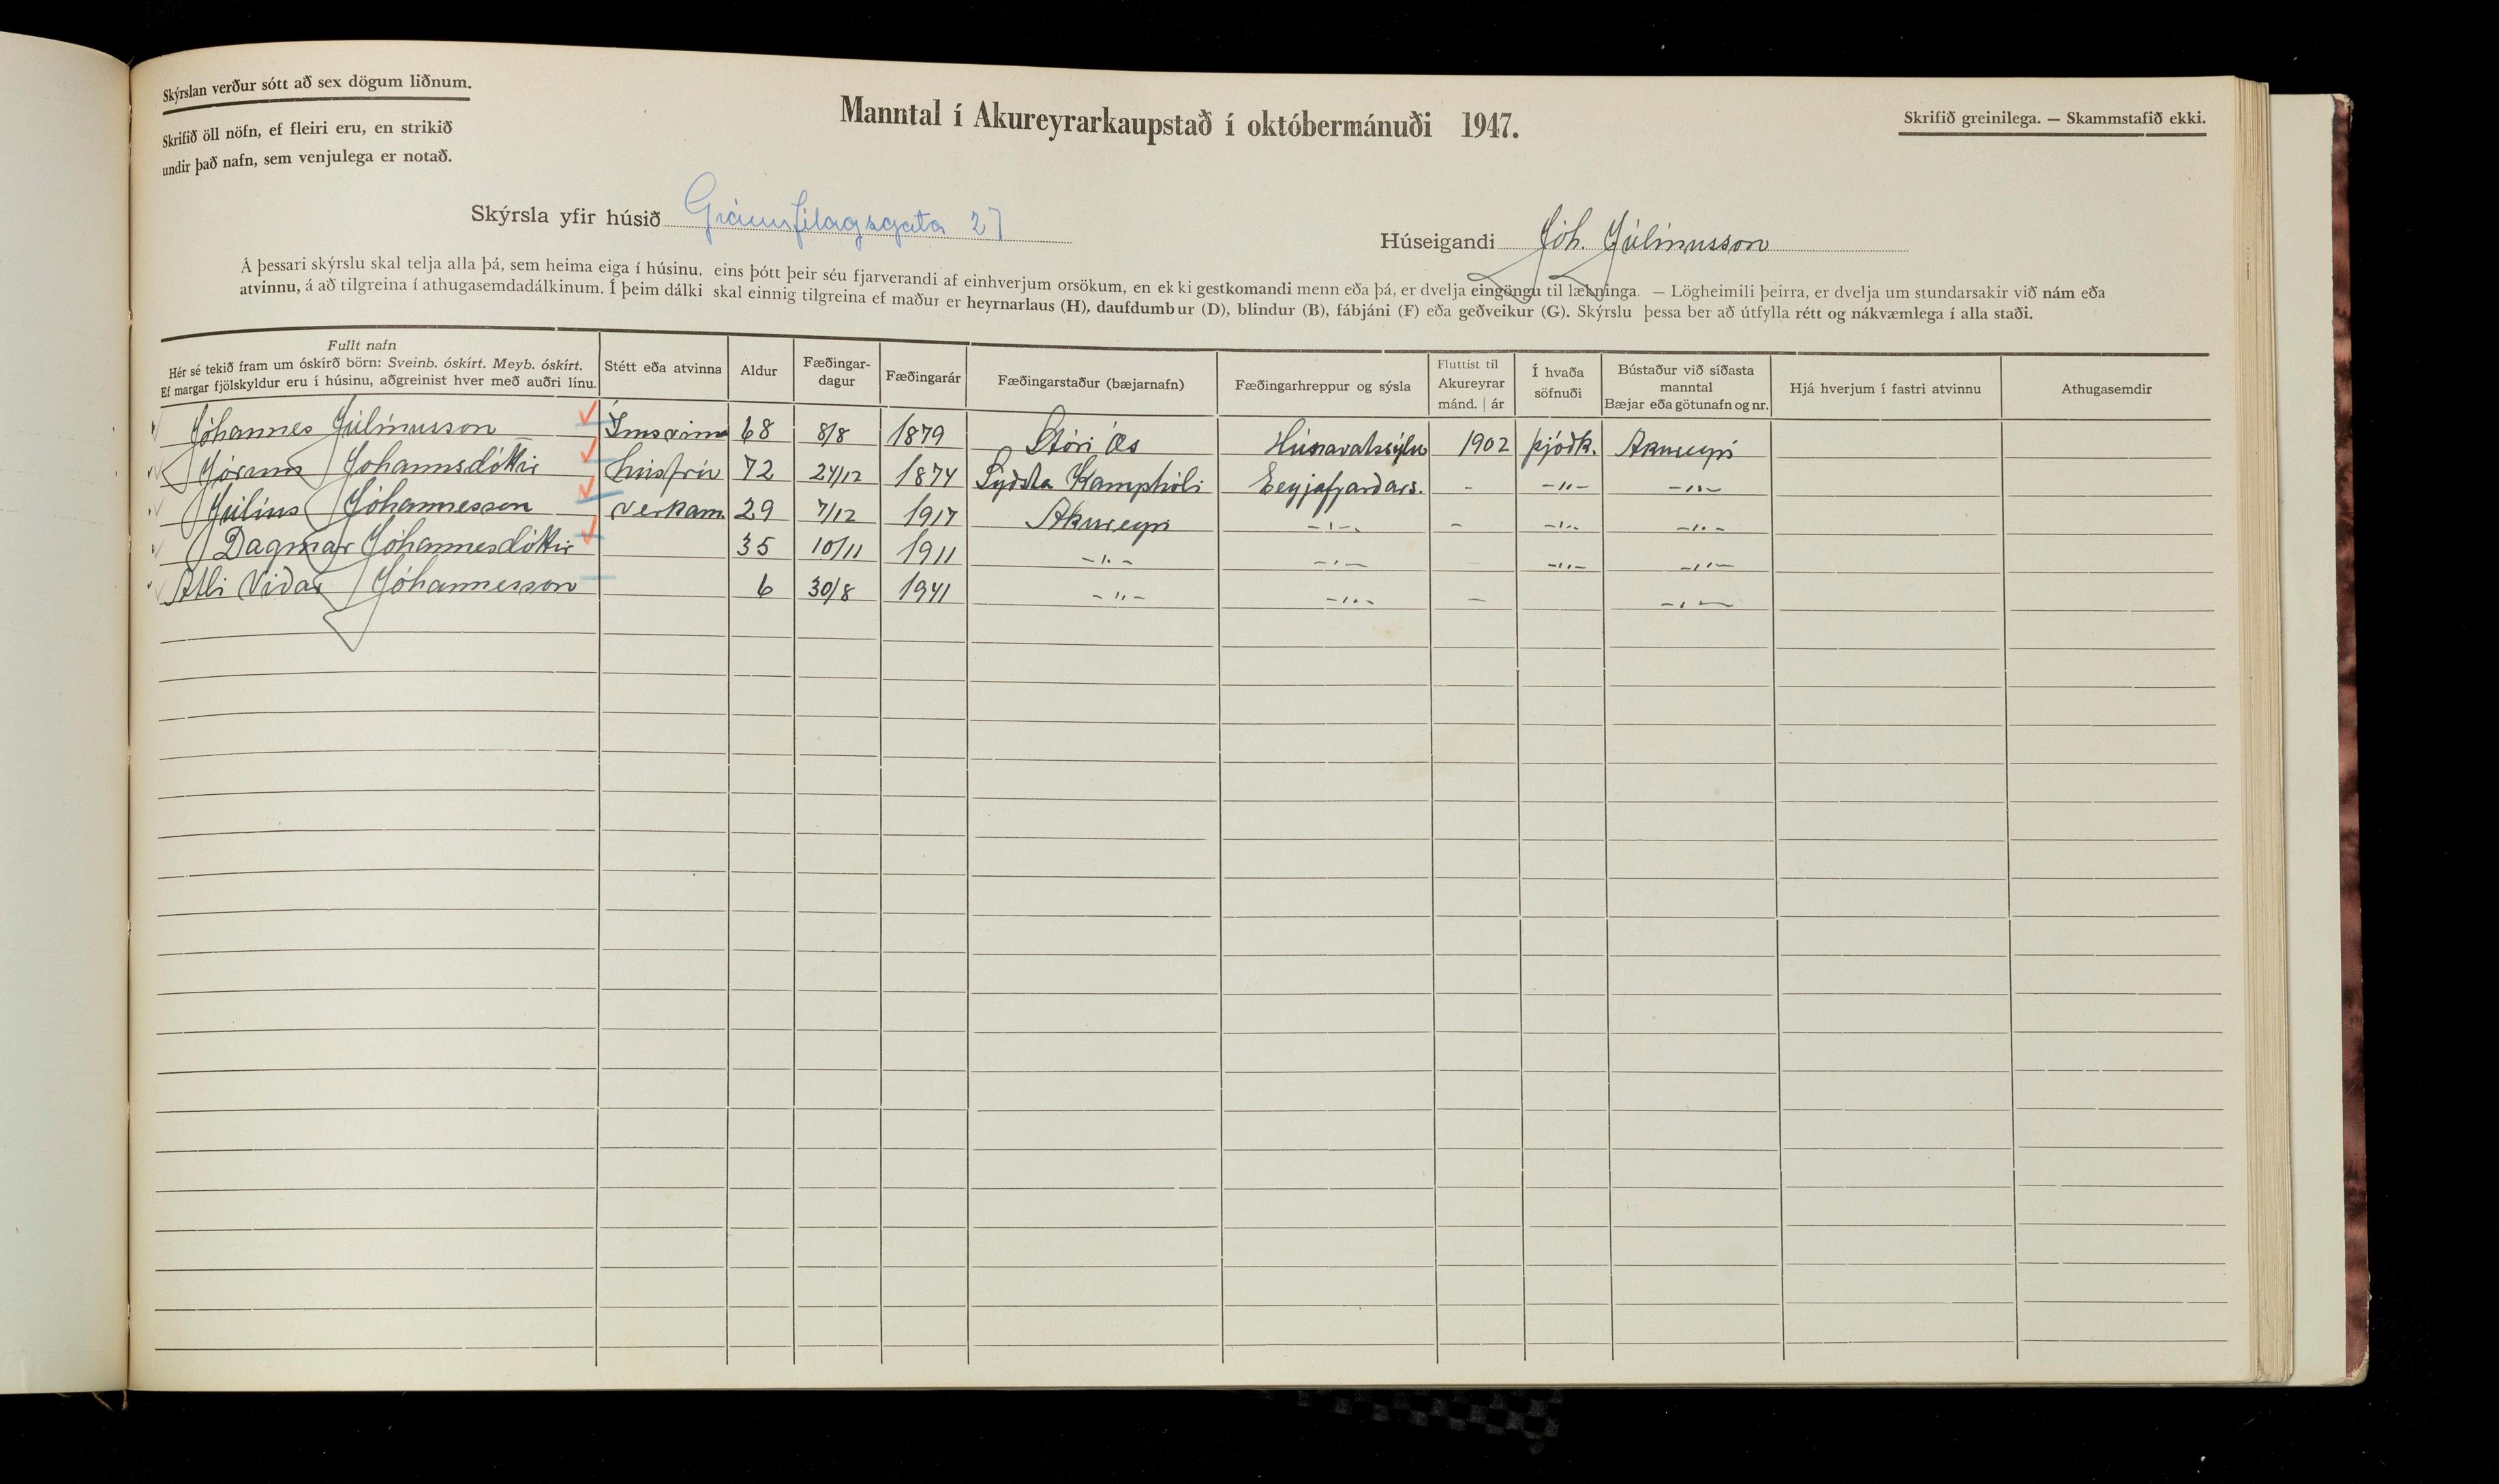 Skýrslan verður sótt að sex dögum liðnum.
Skrifið öll nöfn, ef fleiri eru, en strikið
undir það nafn, sem venjulega er notað.
Manntal í Akureyrarkaupstað í októbermánuði 1947.
Skrifið greinilega. — Skammstafið ekki.
Skýrsla yfir húsið Gránufélagsgata 27
Húseigandi Jóh. Júlínusson
Á þessari skýrslu skal telja alla þá, sem heima eiga í húsinu, eins þótt þeir séu fjarverandi af einhverjum orsökum, en ekki gestkomandi menn eða þá, er dvelja eingöngu til lækninga. — Lögheimili þeirra, er dvelja um stundarsakir við nám eða
atvinnu, á að tilgreina í athugasemdadálkinum. Í þeim dálki skal einnig tilgreina ef maður er heyrnarlaus (H), daufdumbur (D), blindur (B), fábjáni (F) eða geðveikur (G). Skýrslu þessa ber að útfylla rétt og nákvæmlega í alla staði.
Fullt nafn
Hér sé tekið fram um óskírð börn: Sveinb. óskírt. Meyb. óskírt.
Ef margar fjölskyldur eru í húsinu, aðgreinist hver með auðri línu.
Stétt eða atvinna
Aldur
Fæðingar-
dagur
Fæðingarár
Fæðingarstaður (bæjarnafn)
Fæðingarhreppur og sýsla
Fluttist til
Akureyrar
mánd. | ár
Í hvaða
söfnuði
Bústaður við síðasta
manntal
Bæjar eða götunafn og nr.
Hjá hverjum í fastri atvinnu
Athugasemdir
Jóhannes Júlínusson 68 8/8 1879 Stóri Ós Húnavatssýslu 1902 þjóðk. Akureyri
Jórunn Jóhannsdóttir húsfrú 72 24/12 1874 Syðsta Kamphóli Eeyjafjarðars. - -"- -"-
Júlíus Jóhannesson verkam. 29 7/12 1917 Akureyri -"- - -"- -"-
Dagmar Jóhannesdóttir 35 10/11 1911 -"- -"- - -"- -"-
Atli Viðar Jóhannesson 6 30/8 1941 -"- -"- - -"-